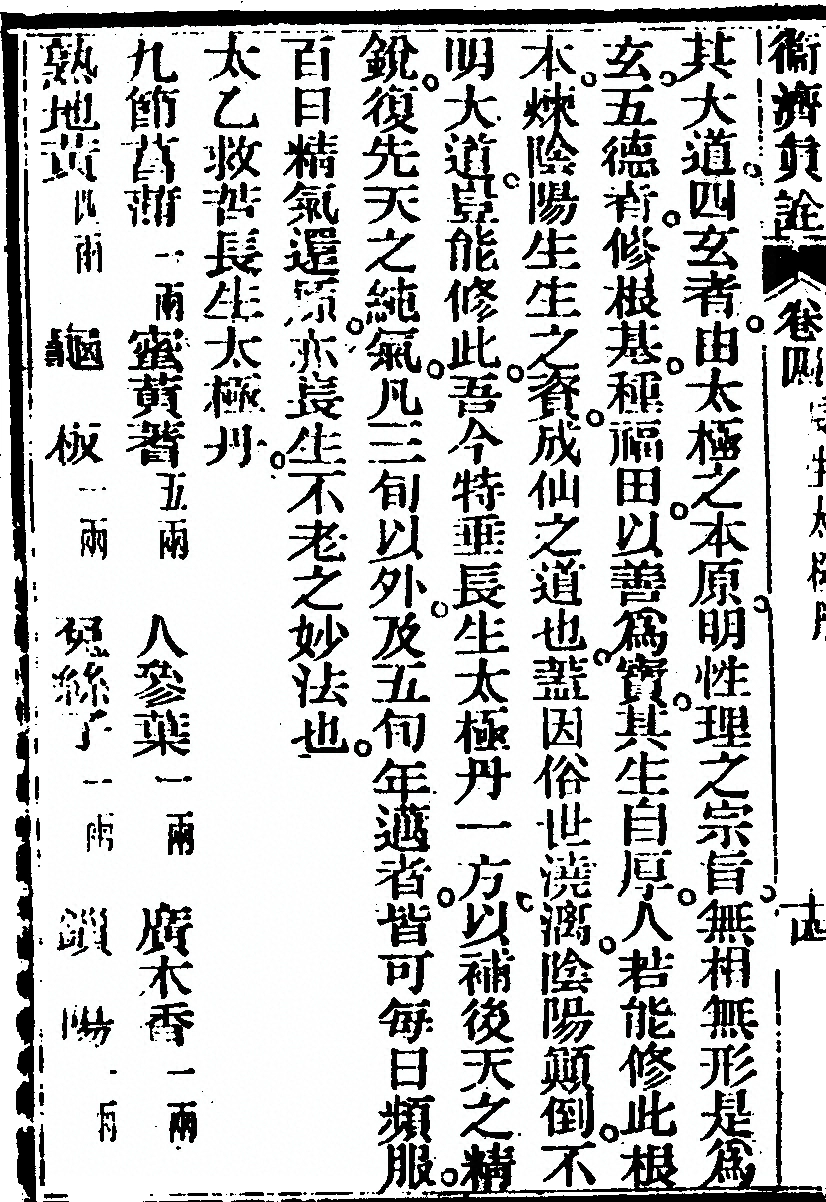 衞濟眞詮 卷四 長生太極丹 十四
其大道。四玄者。由太極之本原。明性理之宗旨。無相無形是爲
玄。五德者。修根基。種福田。以善爲寶。其生自厚。人若能修此根
本。煉陰陽生生之資。成仙之道也。蓋因俗世澆漓。陰陽顚倒。不
明大道。豈能修此。吾今特垂長生太極丹一方。以補後天之精
銳。復先天之純氣。凡三旬以外。及五旬年邁者。皆可每日頻服。
百日精氣還原。亦長生不老之妙法也。
太乙救苦長生太極丹。
九節菖蒲一兩 蜜黃耆五兩 人參葉一兩 廣木香一兩
熟地黃四兩 龜板一兩 兔絲子一兩 鎖陽一兩